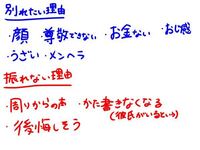 別れたい理由
・顔 ・尊敬できない ・お金ない ・おじ感
・うざい ・メンヘラ
振れない理由
・周りからの声 ・かた書きなくなる
(彼氏がいるという)
・後悔しそう